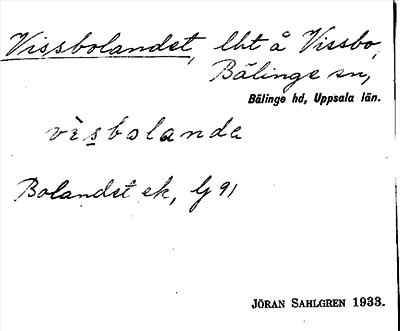 Vissbolandet, lht å Vissbo,
Bälinge sn,
Bälinge hd, Uppsala län.
visbolanda
Bolandet ek, Lg 91
JÖRAN SAHLGREN 1933.